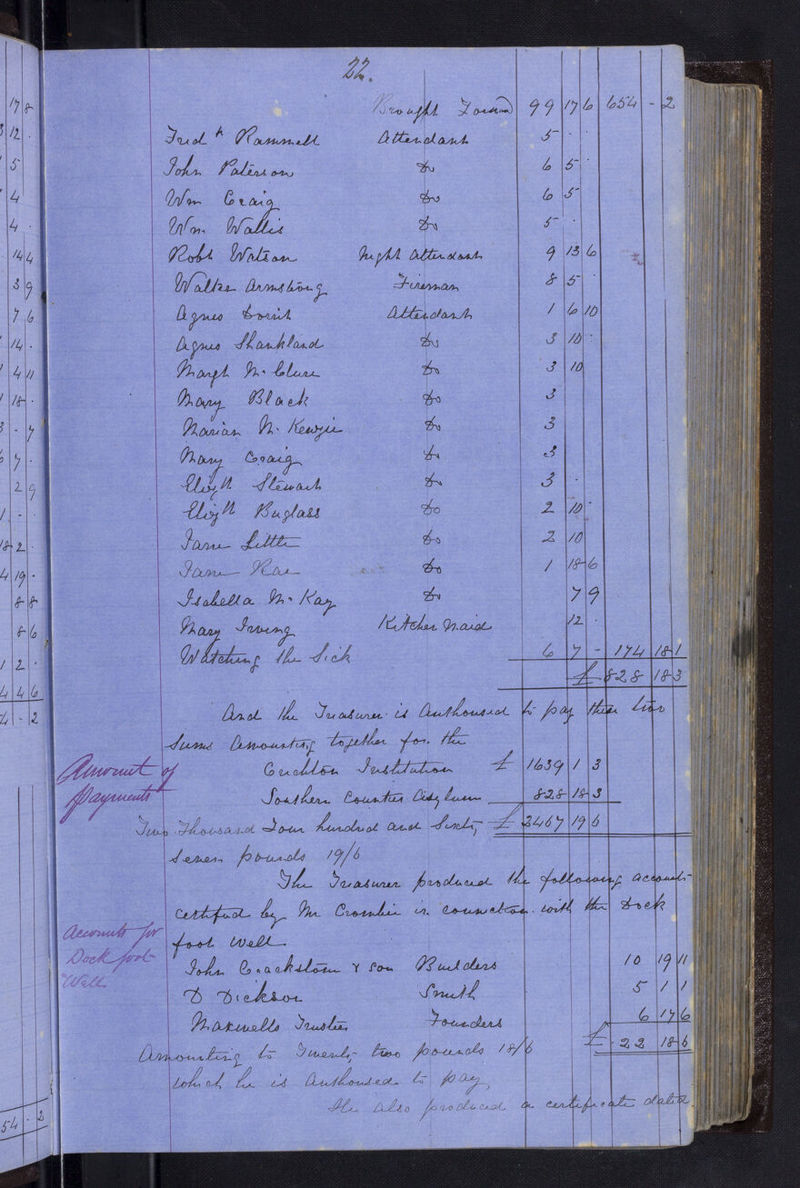 22.
Brought Forward 99 17 6 654 - 2
Fredk Rammell Attendant 5 · ·
John Paterson Do 6 5 ·
Wm Craig Do 6 5
Wm Wallis Do 5 ·
Robt Watson Night Attendant 9 13 6
Walter Armstrong Fireman 8 5 ·
Agnes Attendant 1 6 10
Agnes Shankland Do 3 10 ·
Margt McClure Do 3 10
Mary Black Do 3
Marian McKenzie Do 3
Mary Craig Do 3
Elizth Stewart Do 3 ·
Elizth Buglass Do 2 10 ·
Jane Little Do 2 10
Jane Rae Do 1 18 6
Isabella McKay Do 7 9
Mary Irving Kitchen Maid 12 ·
Watching the Sick 6 7 - 174 18 1
£ 828 18 3
And the Treasurer is Authorised to pay these two
Sums Amounting together for the
Amount of
Payments
Crichton Institution £ 1639 1 3
Southern Counties Asylum 828 18 3
Two Thousand Four hundred and Sixty £ 2467 19 6
Seven pounds 19/6
The Treasurer produced the following accounts
certified by Mr Crombie in connection with the Dock
foot Well
Accounts for
Dock foot
Well
John Crackston & Son Builders 10 19 11
D Dickson Smith 5 1 1
Maxwells Trustees Founders 6 17 6
Amounting to Twenty two pounds 18/6 £ 22 18 6
which he is Authorised to pay
He also produced a certificate dated
17 8
3 12 ·
5
4
4 ·
14 4
3 9
7 6
14 -
4 11
18 -
3 - 7
6 7 -
2 9
1 - -
18 2 ·
4 19 ·
8 8
8 6
1 2 ·
4 4 6
4 - 2
54 · 2